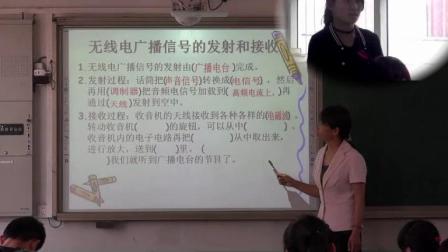 无线电广播信号的发射和接收
1. 无线电广播信号的发射由(广播电台)完成。
2. 发射过程：话筒把(声音信号)转换成(电信号)，然后
再用(调制器)把音频电信号加载到(高频电流上,)再
通过(天线)发射到空中。
3. 接收过程：收音机的天线接收到各种各样的(电磁波)，
转动收音机( )的旋钮，可以从中( )。
收音机内的电子电路再把( )从中取出来，
进行放大，送到( )里，( )
( )我们就听到广播电台的节目了。